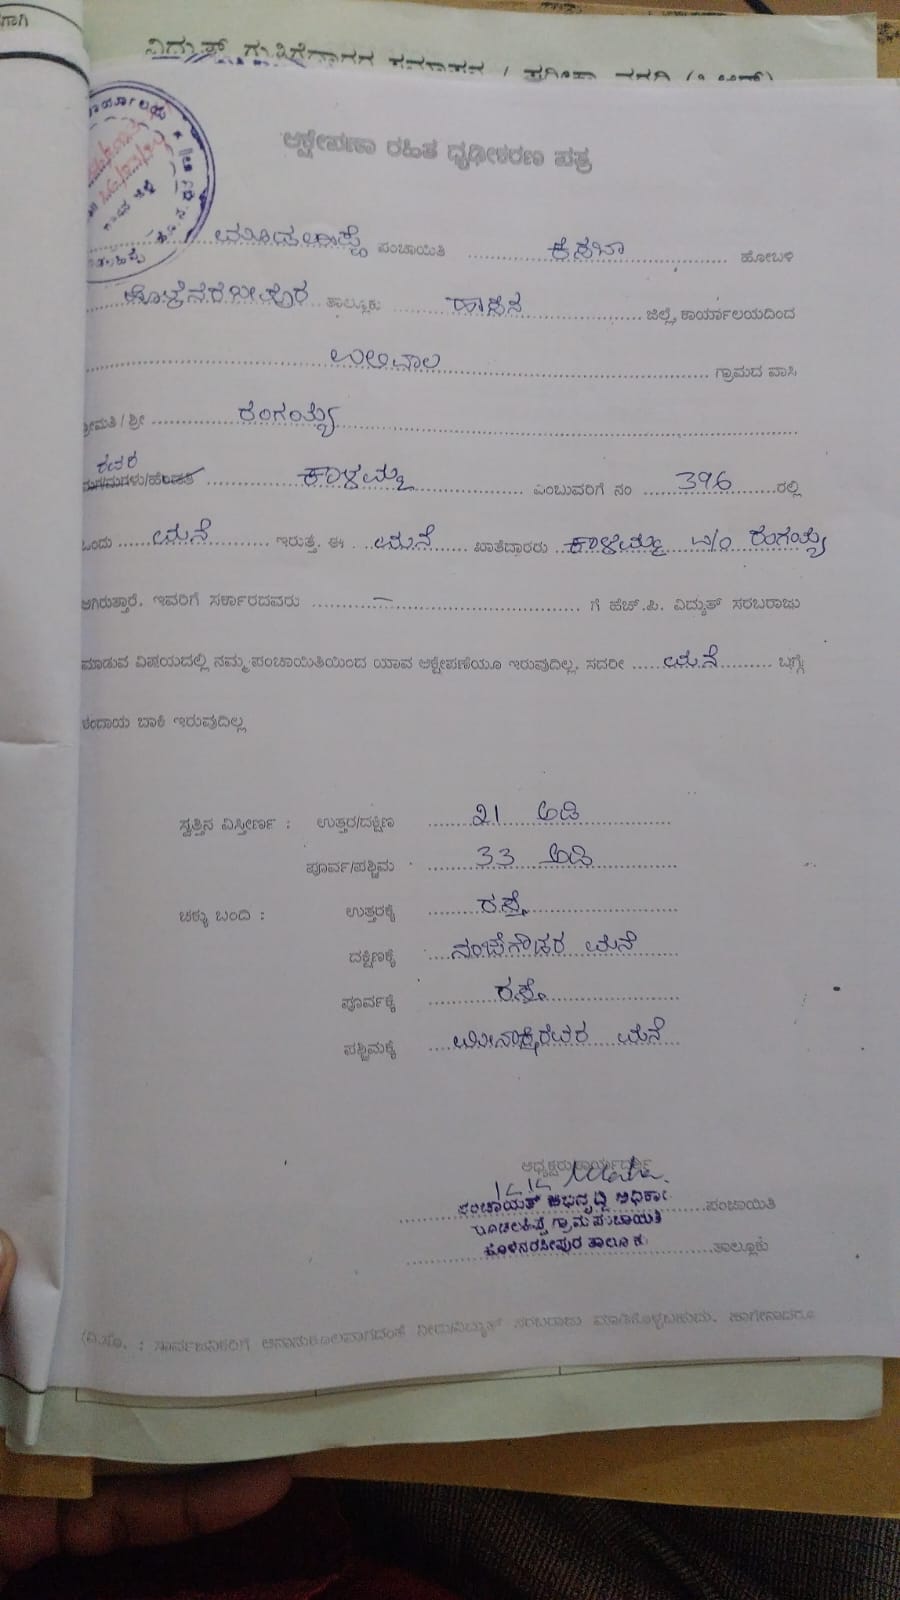 ವಿದ್ಯುತ್
ಆಕ್ಷೇಪಣಾ ರಹಿತ ಧೃಢೀಕರಣ ಪತ್ರ
ಪಂಚಾಯಿತಿ ಕಸಬಾ ಹೋಬಳಿ
ಹೊಳೆನರಸೀಪುರ ತಾಲ್ಲೂಕು ಹಾಸನ ಜಿಲ್ಲೆ, ಕಾರ್ಯಾಲಯದಿಂದ
ಉಲಿವಾಲ ಗ್ರಾಮದ ವಾಸಿ
ಶ್ರೀಮತಿ/ಶ್ರೀ ರಂಗಯ್ಯ
ಮಗ/ಮಗಳು/ಹೆಂಡತಿ ಕಾಳಮ್ಮ ಎಂಬುವರಿಗೆ ನಂ 396 ರಲ್ಲಿ
ಒಂದು ಮನೆ ಇರುತ್ತೆ. ಈ ಮನೆ ಖಾತೆದಾರರು ಕಾಳಮ್ಮ w/o ರಂಗಯ್ಯ
ಆಗಿರುತ್ತಾರೆ. ಇವರಿಗೆ ಸರ್ಕಾರದವರು — ಗೆ ಹೆಚ್.ಪಿ. ವಿದ್ಯುತ್ ಸರಬರಾಜು
ಮಾಡುವ ವಿಷಯದಲ್ಲಿ ನಮ್ಮ ಪಂಚಾಯಿತಿಯಿಂದ ಯಾವ ಆಕ್ಷೇಪಣೆಯೂ ಇರುವುದಿಲ್ಲ. ಸದರೀ ಮನೆ ಬಗ್ಗೆ
ಕಂದಾಯ ಬಾಕಿ ಇರುವುದಿಲ್ಲ
ಸ್ವತ್ತಿನ ವಿಸ್ತೀರ್ಣ : ಉತ್ತರ/ದಕ್ಷಿಣ 21 ಅಡಿ
ಪೂರ್ವ/ಪಶ್ಚಿಮ 33 ಅಡಿ
ಚಕ್ಕು ಬಂದಿ : ಉತ್ತರಕ್ಕೆ ರಸ್ತೆ
ದಕ್ಷಿಣಕ್ಕೆ ನಂಜೇಗೌಡರ ಮನೆ
ಪೂರ್ವಕ್ಕೆ ರಸ್ತೆ
ಪಶ್ಚಿಮಕ್ಕೆ ಮೀನಾಕ್ಷಿರವರ ಮನೆ
ಅಧ್ಯಕ್ಷರು/ಕಾರ್ಯದರ್ಶಿ
ಪಂಚಾಯತ್ ಅಭಿವೃದ್ಧಿ ಅಧಿಕಾರಿ ಪಂಚಾಯಿತಿ
ಗ್ರಾಮ ಪಂಚಾಯಿತಿ
ಹೊಳೆನರಸೀಪುರ ತಾಲ್ಲೂಕು ತಾಲ್ಲೂಕು